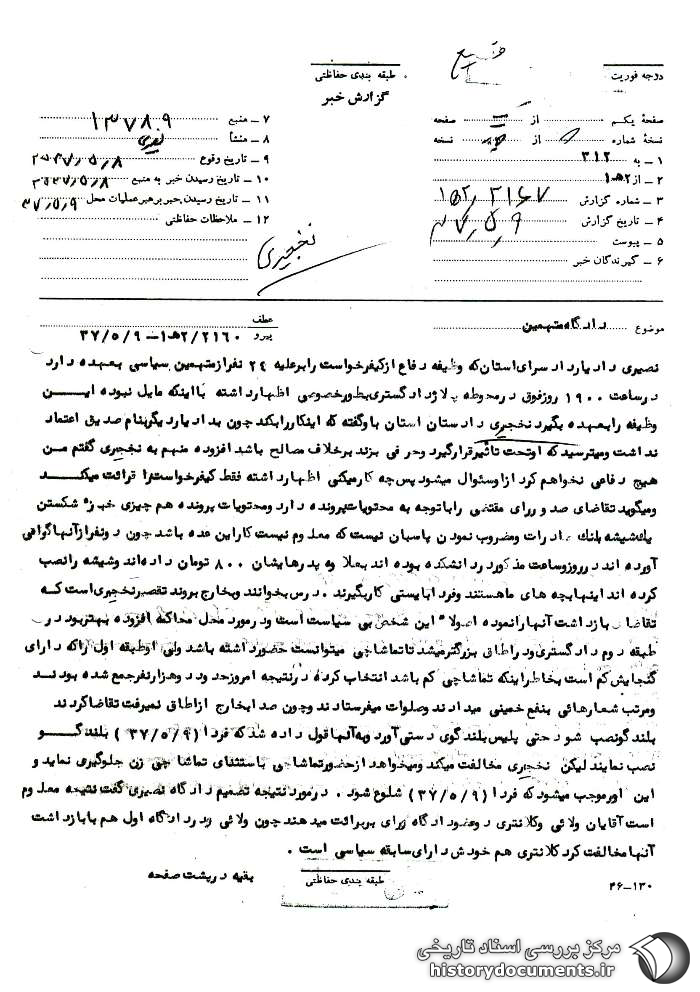 درجه فوریت
طبقه بندی حفاظتی
گزارش خبر
صفحهٔ یکم از صفحه
نسخهٔ شماره از نسخه
۱ ـ به ۳۱۲
۲ ـ از ۲ه۱
۳ ـ شماره گزارش
۴ ـ تاریخ گزارش ۳۷٫۵٫۹
۵ ـ پیوست
۶ ـ گیرندگان خبر
۷ ـ منبع ۱۳۷۸۰۹
۸ ـ منشأ
۹ ـ تاریخ وقوع ۲۵۳۷٫۵٫۸
۱۰ ـ تاریخ رسیدن خبر به منبع ۲۵۳۷٫۵٫۸
۱۱ ـ تاریخ رسیدن خبر برهبر عملیات محل ۳۷٫۵٫۹
۱۲ ـ ملاحظات حفاظتی
نخجیری
موضوع دادگاه متهمین
عطف
پیرو ۲۱۶۰/۲ه۱ـ۳۷/۵/۹
نصیری دادیار دادسرای استان که وظیفه دفاع از کیفرخواست را برعلیه ۲۴ نفر از متهمین سیاسی بعهده دارد
در ساعت ۱۹۰۰ روز فوق در محوطه پلاژ دادگستری بطور خصوصی اظهار داشته با اینکه مایل نبوده این
وظیفه را بعهده بگیرد نخجیری دادستان استان باو گفته که اینکار را بکند چون به دادیار دیگر بنام صدیق اعتماد
نداشت و میترسید که او تحت تأثیر قرار گیرد و حرفی بزند برخلاف مصالح باشد افزوده منهم به نخجیری گفتم من
هیچ دفاعی نخواهم کرد از او سئوال میشود پس چه کار میکنی اظهار داشته فقط کیفرخواست را قرائت میکند
و میگوید تقاضای صدور رای مقتضی را با توجه به محتویات پرونده دارد و محتویات پرونده هم چیزی خبر" شکستن
یک شیشه بانک صادرات و مضروب نمودن پاسبان نیست که معلوم نیست کار این عده باشد چون دو نفر از آنها گواهی
آورده اند در روز و ساعت مذکور در دانشکده بوده اند بعلاوه پدرهایشان ۸۰۰ تومان داده اند و شیشه را نصب
کرده اند اینها بچه های ما هستند و فردا بایستی کار بگیرند . درس بخوانند و بخارج بروند تقصیر نخجیری است که
تقاضای بازداشت آنها را نموده اصولا" این شخص بی سیاست است و در مورد محل محاکمه افزوده بهتر بود در
طبقه دوم دادگستری در اطاق بزرگتر میشد تا تماشاچی میتوانست حضور داشته باشد ولی او طبقه اول را که دارای
گنجایش کم است بخاطر اینکه تماشاچی کم باشد انتخاب کرد و در نتیجه امروز حدود دو هزار نفر جمع شده بودند
و مرتب شعارهائی بنفع خمینی میدادند و صلوات میفرستادند و چون صدا بخارج از اطاق نمیرفت تقاضا کردند
بلندگو نصب شود حتی پلیس بلندگوی دستی آورد و به آنها قول داده شد که فردا (۳۷/۵/۹) بلندگو
نصب نمایند لیکن نخجیری مخالفت میکند و میخواهد از حضور تماشاچی باستثنای تماشاچی زن جلوگیری نماید و
این امر موجب میشود که فردا (۳۷/۵/۹) شلوغ شود . در مورد نتیجه تصمیم دادگاه نصیری گفت نتیجه معلوم
است آقایان ولائی و کلانتری دو عضو دادگاه رای بر برائت میدهند چون ولائی در دادگاه اول هم با بازداشت
آنها مخالفت کرد کلانتری هم خودش دارای سابقه سیاسی است .
بقیه در پشت صفحه
طبقه بندی حفاظتی
۴۶ـ۱۳۰
مرکز بررسی اسناد تاریخی
historydocuments.ir